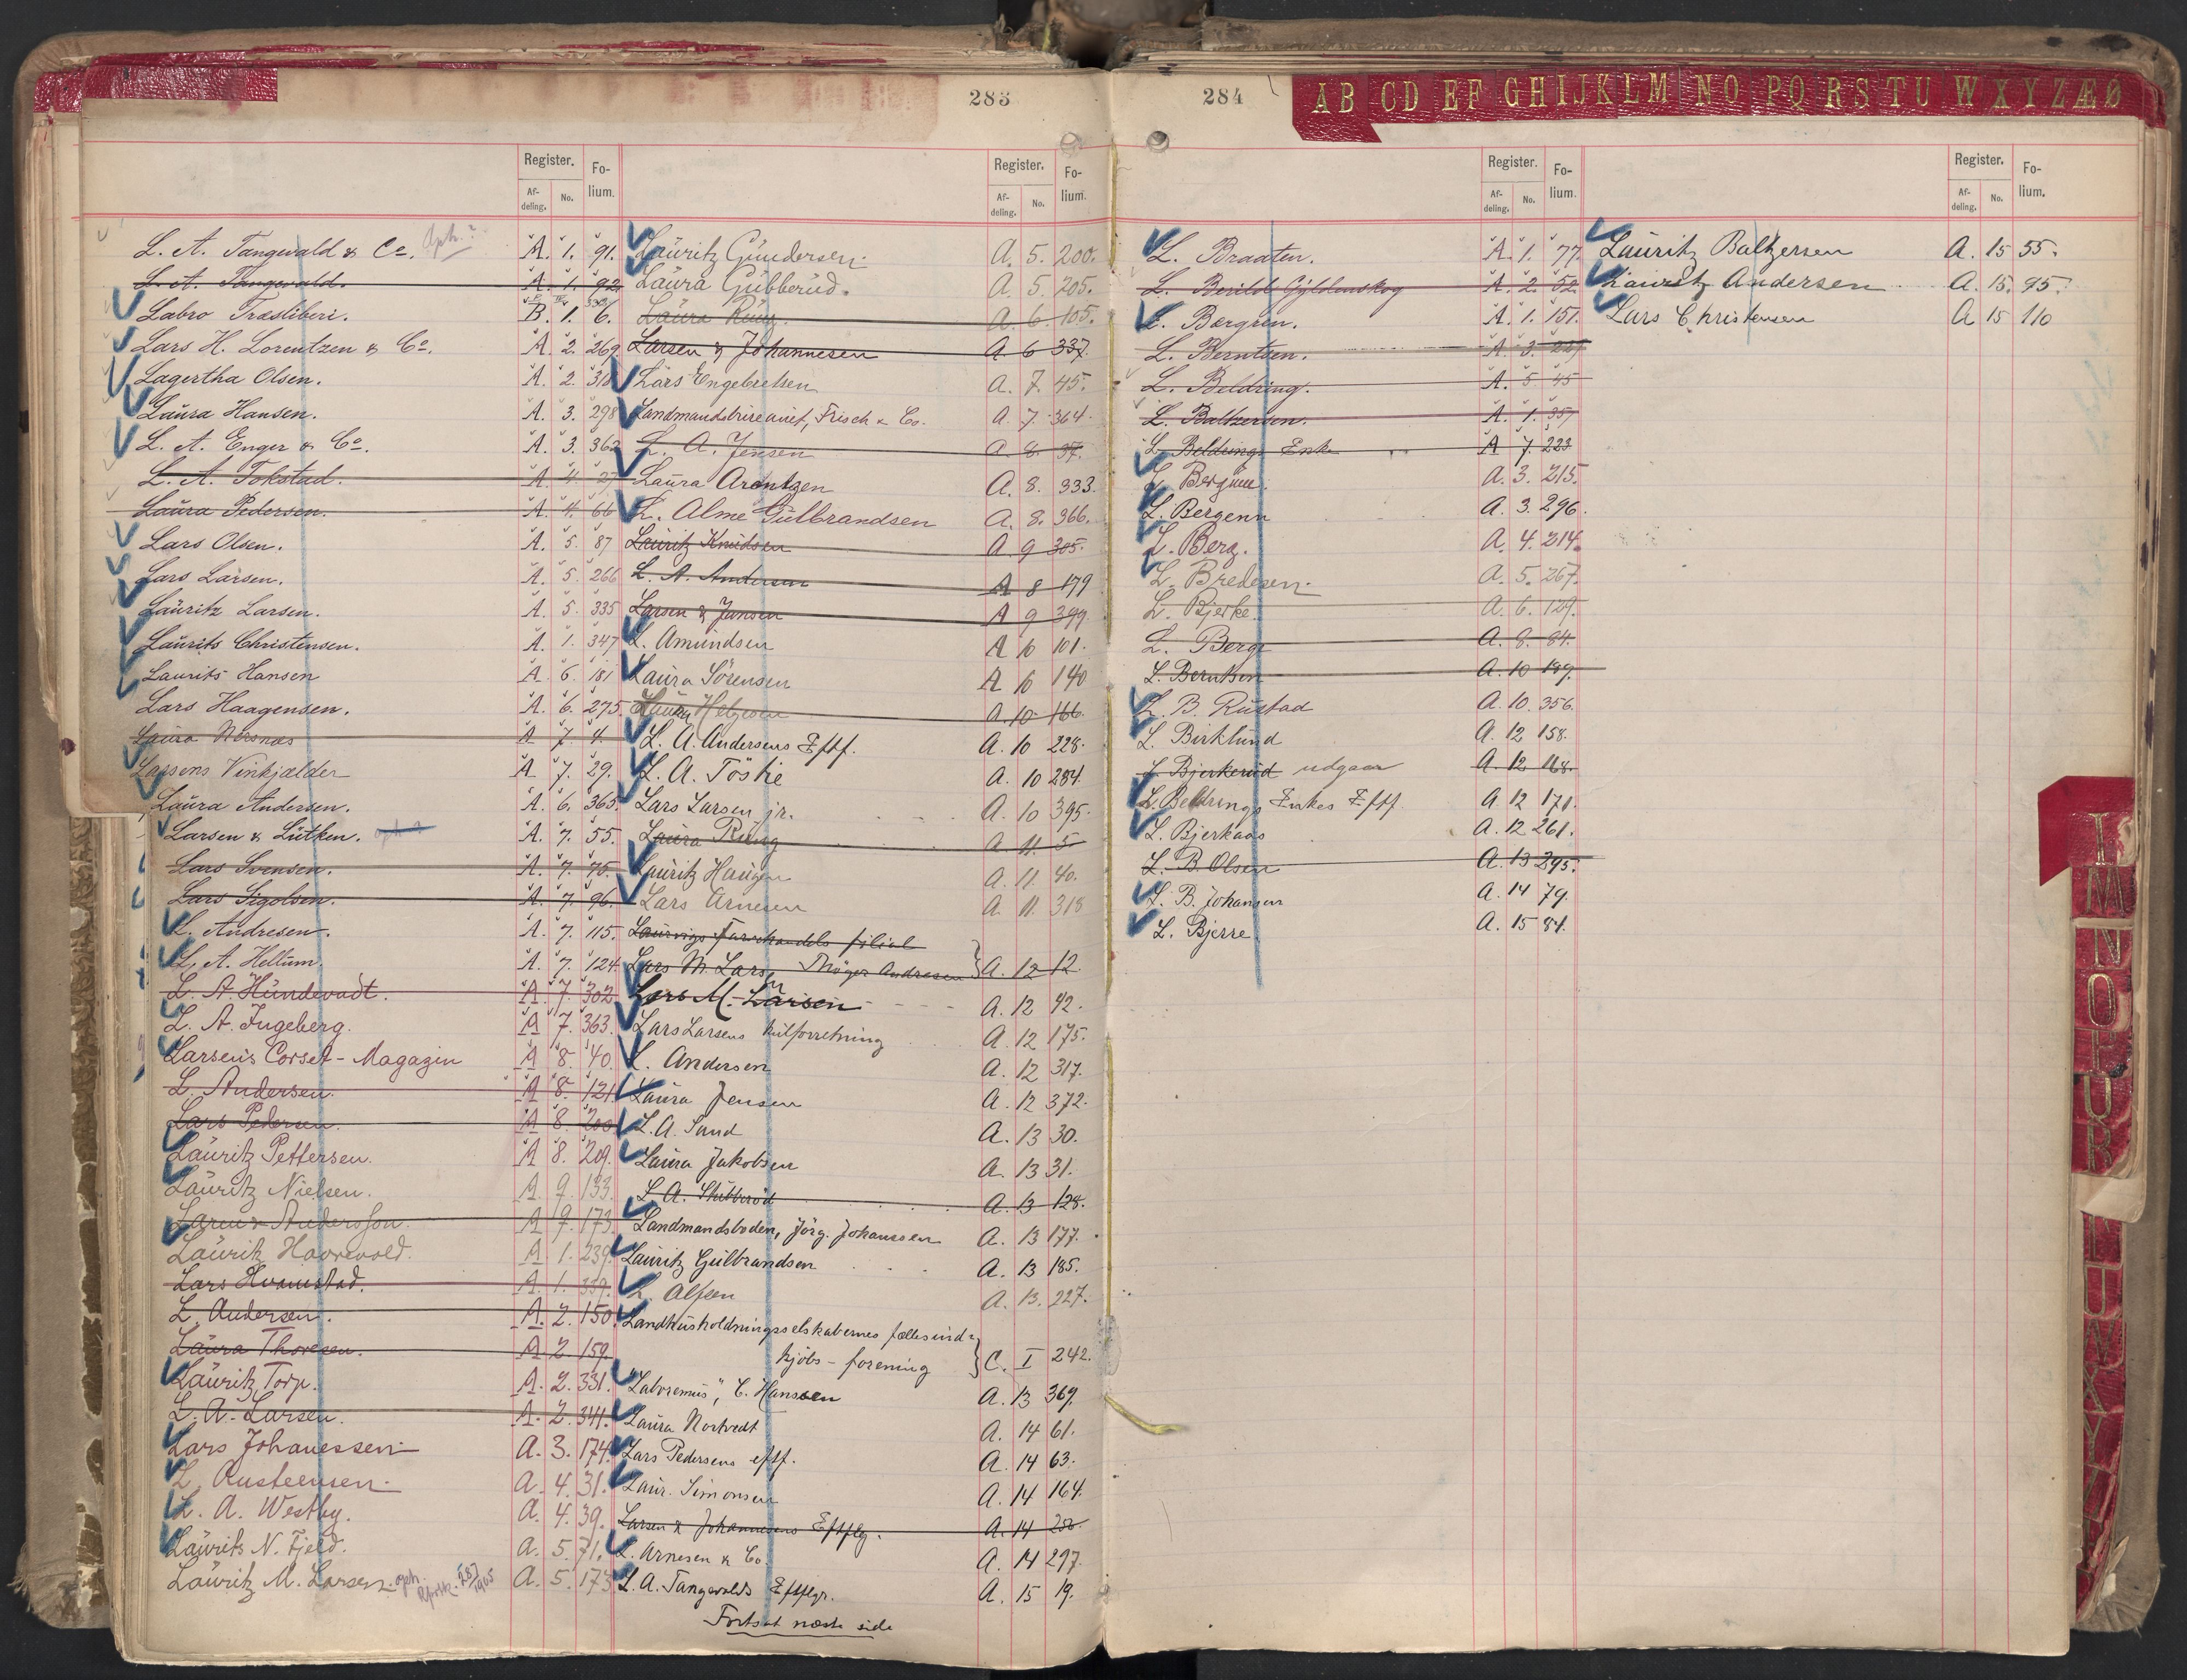 283
Register.
Fo-
lium.
Af-
deling.
No.
L. A. Tangevald & Co. Oph.?
A. 1. 91.
L. A. Tangevald.
A. 1. 92.
Labro Træsliberi.
B. 1. 6.
Lars H. Lorentzen & Co.
A. 2. 269.
Lagertha Olsen.
A. 2. 318
Laura Hansen.
A. 3. 298
L. A. Enger & Co.
A. 3. 362
L. A. Tokstad.
A. 4. 27
Laura Pedersen.
A. 4. 66
Lars Olsen.
A. 5. 87
Lars Larsen.
A. 5. 266
Lauritz Larsen.
A. 5. 335
Laurits Christensen.
A. 1. 347
Laurits Hansen
A. 6. 181
Lars Haagensen.
A. 6. 275.
Laura Næsnæs
A 7. 4.
Larsens Vinkjælder
A 7. 29.
Laura Andersen.
A. 6. 365.
Larsen & Lütken.
A. 7. 55.
Lars Svensen.
A. 7. 75.
Lars Sigolsen.
A. 7. 96.
L. Andresen.
A. 7. 115.
L. A. Hellum.
A. 7. 124.
L. A. Hundevadt.
A. 7. 302
L. A. Ingeberg.
A 7. 363.
Larsen's Corset-Magazin
A 8. 40.
L. Andersen.
A 8. 121
Lars Pedersen.
A 8. 200
Lauritz Pettersen.
A 8. 209.
Lauritz Nielsen.
A. 9. 133.
Laren & Andersson.
A 9. 173.
Lauritz Haavevold.
A. 1. 239.
Lars Hvamstad.
A. 1. 339.
L. Andersen.
A. 2. 150.
Laura Thoresen.
A 2 159.
Lauritz Torp.
A. 2. 331.
L. A. Larsen.
A. 2. 341.
Lars Johanessen
A. 3. 174.
L. Austeensen
A. 4. 31.
L. A. Westby.
A. 4. 39.
Laurits N. Fjeld.
A. 5. 71.
Lauritz M. Larsen. oph.
A. 5. 173
Register.
Fo-
lium.
Af-
deling.
No.
Lauritz Gundersen
A. 5. 200.
Laura Gubberud.
A. 5. 205.
Laura Ruug.
A. 6. 105.
Larsen & Johannesen
A 6 337.
Lars Engebretsen
A. 7. 45.
Landmandsbureauet, Frisch & Co.
A. 7. 364.
L. A. Jensen
A 8. 37.
Laura Arentzen
A. 8. 333.
L. Alme Gulbrandsen
A. 8. 366.
Lauritz Knudsen
A 9 305.
L. A. Andersen
A 8 179
Larsen & Jansen
A 9 399
L. Amundsen
A 10 101.
Laura Sörensen
A 10 140
A. 10 166.
L. A. Andersens Eftf.
A. 10 228.
L. A. Töstie
A. 10 284.
Lars Larsen jr.
A. 10 395.
Laura Ruug
A 11. 5
Lauritz Haugen
A. 11. 40.
Lars Arnesen
A. 11. 318
Laurvigs Farvehandels filial
Lars M. Lars, Thöger Andresen } A. 12 12.
Lars M. Larsen
A. 12 42.
Lars Larsens kulforretning
A. 12 175.
L. Andersen
A. 12 317.
Laura Jensen
A. 12 372.
L. A. Sand
A. 13 30.
Laura Jakobsen
A. 13 31.
L. A. Stubberöd
A. 13 128.
Landmandsboden, Jörg. Johanssen
A. 13 177.
Lauritz Gulbrandsen
A. 13 185.
L. Alfsen
A. 13. 227.
Landhusholdningsselskabernes fællesind-
kjöbs-forening } C. I 242.
"Laboremus", C. Hanssen
A. 13 369.
Laura Nortvedt
A. 14 61.
Lars Pedersens eftf.
A. 14 63.
Laur. Simonsen
A. 14 164.
Larsen & Johannesens Eftflg.
A. 14 250.
L. Arnesen & Co.
A. 14 297.
L. A. Tangevalds Eftflgr.
A. 15 19.
Fortsat næste side
284
AB CD EF GHIJKLM NO PQ RS TU W XYZÆØ
Register.
Fo-
lium.
Af-
deling.
No.
L. Braaten.
A. 1. 77.
L. Berildt Gyldenskog
A. 2. 52.
L. Borgren.
A. 1. 151.
L. Berntsen.
A. 3. 227
L. Beldring.
A. 5 45
L. Baltzersen.
A. 1. 357
L. Beldrings Enke
A 7. 223
L. Bergum
A. 3. 215.
L. Bergenn
A. 3. 296.
L. Berg.
A. 4. 214.
L. Bredesen
A. 5. 267.
L. Bjerke
A. 6. 129.
L. Berge
A. 8. 84.
L. Berntsen
A. 10 189.
L. B. Rustad
A. 10. 356.
L. Birklund
A. 12 158.
L. Bjerkerud udgaar
A. 12 168.
L. Beldrings Enkes Eftf.
A. 12 171.
L. Bjerkaas
A. 12 261.
L. B. Olsen
A. 13 295.
L. B. Johansen
A. 14 79.
L. Bjerre
A. 15 84.
Register.
Fo-
lium.
Af-
deling.
No.
Lauritz Baltzersen
A. 15 55.
Lauritz Andersen
A. 15. 95.
Lars Christensen
A 15 110